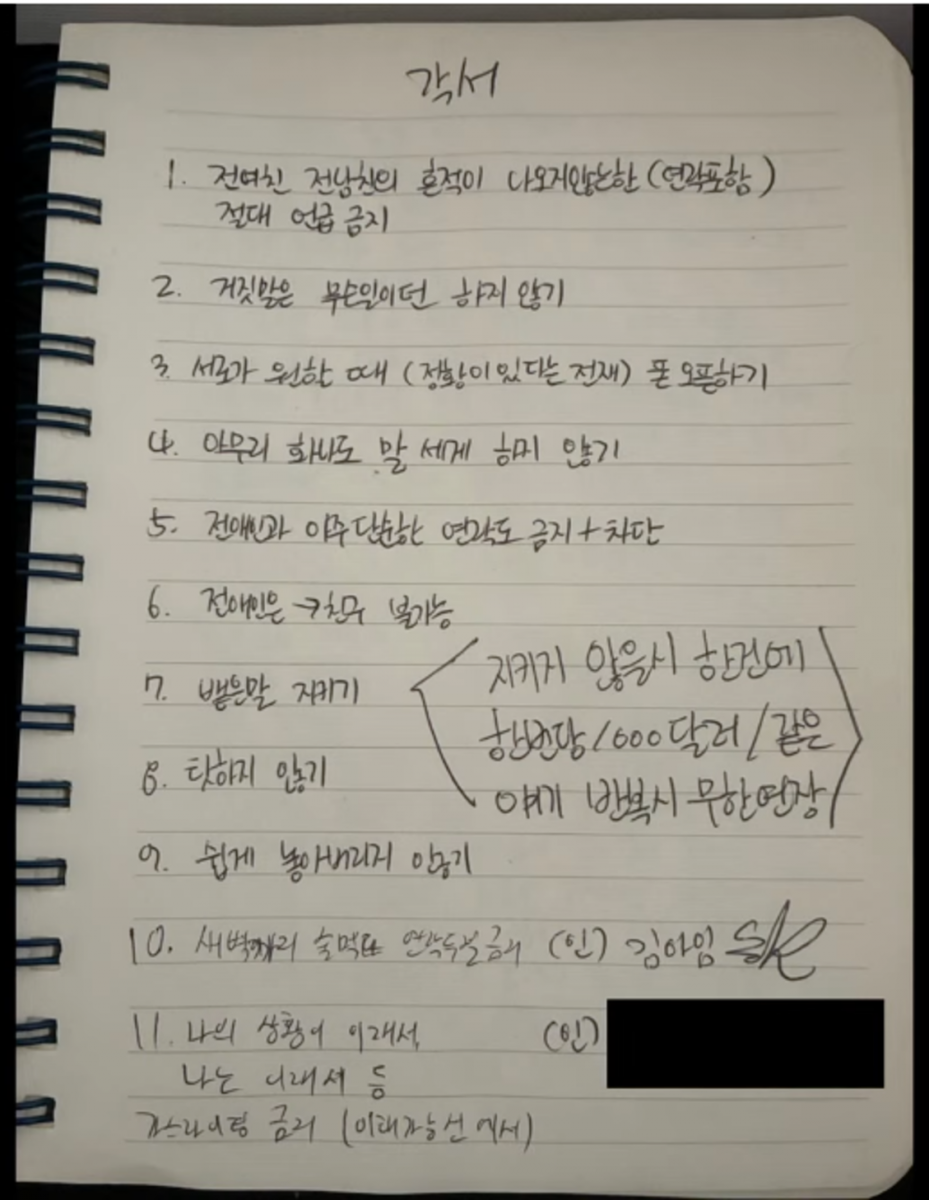 각서
1. 전여친 전남친의 흔적이 나오지않는한 (연락포함)
절대 언급 금지
2. 거짓말은 무슨일이던 하지 않기
3. 서로가 원한 때 (정황이 있다는 전재) 폰 오픈하기
4. 아무리 화나도 말 세게 하지 않기
5. 전애인과 아주 단순한 연락도 금지 + 차단
6. 전애인은 → 친구 불가능
7. 뱉은말 지키기
8. 탓하지 않기
지키지 않을시 한건에
한번당 1000달러 / 같은
얘기 반복시 무한연장
9. 쉽게 놓아버리지 않기
10. 새벽까지 술먹고 연락두절금지 (인) 김아임
11. 나의 상황이 이래서, (인)
나는 이래서 등
가스라이팅 금지 (이해가능선에서)